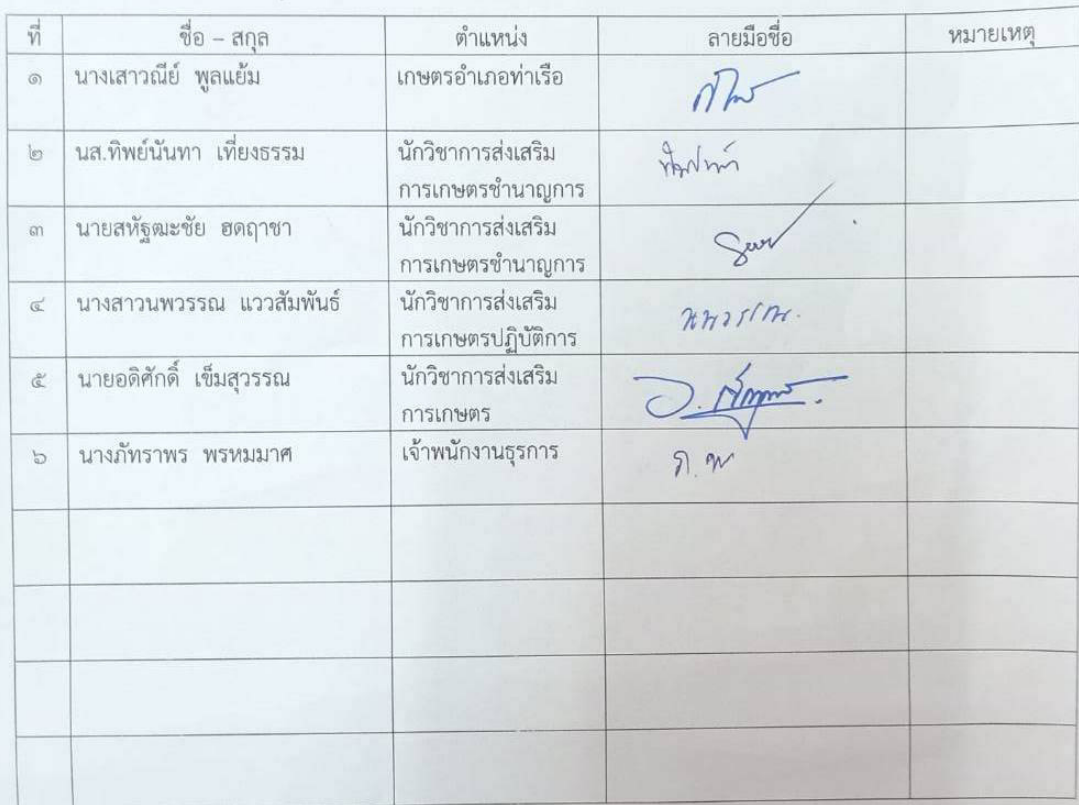 ที่ ชื่อ – สกุล ตำแหน่ง ลายมือชื่อ หมายเหตุ
๑ นางเสาวณีย์ พูลแย้ม เกษตรอำเภอท่าเรือ
๒ นส.ทิพย์นันทา เที่ยงธรรม นักวิชาการส่งเสริม
การเกษตรชำนาญการ
๓ นายสหัฐฒะชัย ฮดฤาชา นักวิชาการส่งเสริม
การเกษตรชำนาญการ
๔ นางสาวนพวรรณ แววสัมพันธ์ นักวิชาการส่งเสริม นพวรรณ.
การเกษตรปฏิบัติการ
๕ นายอดิศักดิ์ เข็มสุวรรณ นักวิชาการส่งเสริม
การเกษตร
๖ นางภัทราพร พรหมมาศ เจ้าพนักงานธุรการ ภ.พ